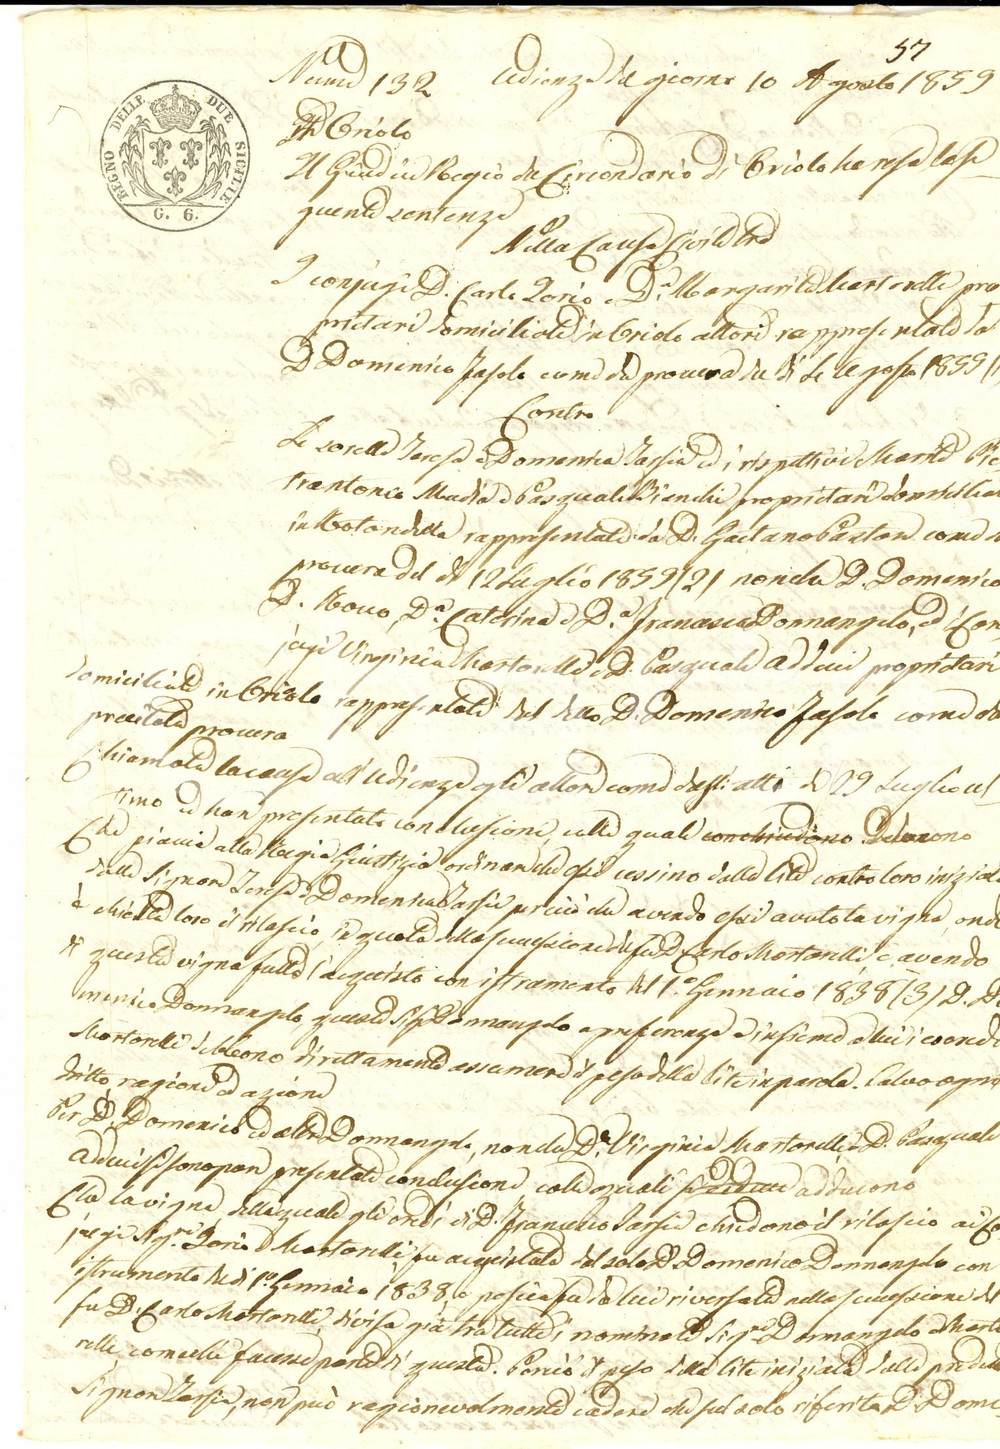 57
Num.º 132 Udienza del giorno 10 Agosto 1859
REGNO DELLE DUE SICILIE
G. G.
Oriolo
Il Giudice Regio del Circondario di Oriolo ha resa la se-
guente sentenza
Nella Causa Civile tra
I conjugi D. Carlo Iorio e D.ª Margarita Martorelli pro
prietari domiciliati in Oriolo attori rappresentati da
D. Domenico Fasolo come da procura del dì 4 Agosto 1859
Contro
Le sorelle Teresa e Domenica Tarsia ed i rispettivi Mariti Pie
trantonio e Pasquale Bianchi proprietari domiciliati
in Rotondella rappresentati da D. Gaetano Pastore come da
procura del dì 12 Luglio 1859 (2) nonché D. Domenico
D. Rocco, D.ª Caterina e D.ª Francesca Donnangelo, ed i Con
jugi Virginia Martorelli e D. Pasquale Adduci proprietari
domiciliati in Oriolo rappresentati dal detto D. Domenico Fasolo come da
precitata procura
Chiamata la causa all'Udienza gli attori come dagli atti del 29 Luglio ul
timo ed han presentato conclusioni, colle quali conchiudono Deducono
Che piaccia alla Regia Giustizia ordinare che essi cessino dalla lite contro loro iniziata
dalle Signore Teresa e Domenica Tarsia perciò che avendo essi avuto la vigna, onde
è chiesto loro il rilascio, in quota della successione del fu D. Carlo Martorelli, e avendo
di questa vigna fatto l'acquisto con istrumento del 1.º Gennaio 1838 (3) D. Do
menico Donnangelo, questi Sig. Donnangelo a preferenza e insieme a lui i coeredi
Martorelli debbono direttamente assumere il peso della lite in parola. Salvo ogni
dritto ragione ed azione
Per D. Domenico ed altri Donnangelo, nonché D.ª Virginia Martorelli e D. Pasquale
Adduci si sono pure presentate conclusioni colle quali adducono
Che la vigna della quale gli eredi di D. Francesco Tarsia chiedono il rilascio ai Co
jugi Sig.ri Iorio e Martorelli, fu acquistata dal solo D. Domenico Donnangelo con
istrumento del dì 1.º Gennaio 1838, e poscia fu da lui riversata nella successione del
fu D. Carlo Martorelli, divisa già tra tutti i nominati Sig.ri Donnangelo e Marto
relli come che facente parte di questa. Perciò il peso della lite iniziata dalle predette
Signore Tarsia, non può ragionevolmente cadere che sul solo riferito D. Dome